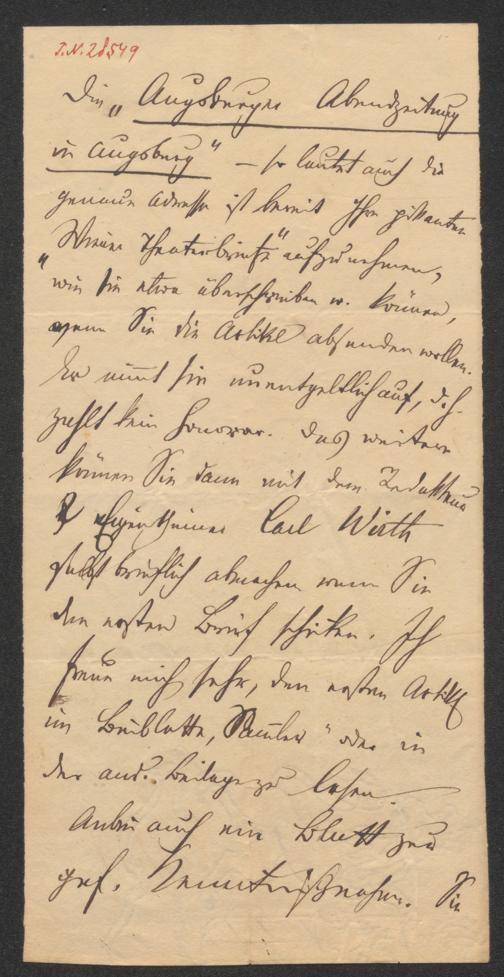 I.N. 28549
Die „Augsburger Abendzeitung
in Augsburg" – so lautet auch die
genaue Adresse ist bereit Ihre pikanten
„Wiener Theaterbriefe" aufzunehmen,
wie Sie etwa überschreiben w. können,
wenn Sie die Artikel absenden wollen.
Er nimt sie unentgeltlich auf, d. h.
zahlt kein Honorar. Das weitere
können Sie dann mit dem Redakteur
& Eigenthümer Carl Wirth
selbst brieflich abmachen wenn Sie
den ersten Brief schicken. Ich
freue mich sehr, den ersten Artikel
im Beiblatte, Sammler" oder in
der and. Beilage zu lesen.
Anbei auch ein Blatt zur
gef. Kenntnißnahme. Sie